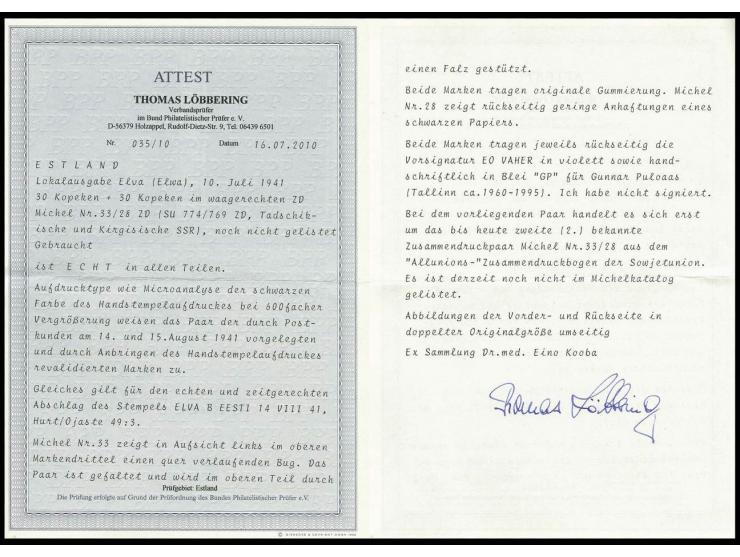 ATTEST
THOMAS LÖBBERING
Verbandsprüfer
im Bund Philatelistischer Prüfer e. V.
D-56379 Holzappel, Rudolf-Dietz-Str. 9, Tel. 06439 6501
Nr. 035/10 Datum 16.07.2010
E S T L A N D
Lokalausgabe Elva (Elwa), 10. Juli 1941
30 Kopeken + 30 Kopeken im waagerechten ZD
Michel Nr.33/28 ZD (SU 774/769 ZD, Tadschik-
ische und Kirgisische SSR), noch nicht gelistet
Gebraucht
ist E C H T in allen Teilen.
Aufdrucktype wie Microanalyse der schwarzen
Farbe des Handstempelaufdruckes bei 600facher
Vergrößerung weisen das Paar der durch Post-
kunden am 14. und 15.August 1941 vorgelegten
und durch Anbringen des Handstempelaufdruckes
revalidierten Marken zu.
Gleiches gilt für den echten und zeitgerechten
Abschlag des Stempels ELVA B EESTI 14 VIII 41,
Hurt/Ojaste 49:3.
Michel Nr.33 zeigt in Aufsicht links im oberen
Markendrittel einen quer verlaufenden Bug. Das
Paar ist gefaltet und wird im oberen Teil durch
Prüfgebiet: Estland
Die Prüfung erfolgte auf Grund der Prüfordnung des Bundes Philatelistischer Prüfer e.V.
einen Falz gestützt.
Beide Marken tragen originale Gummierung. Michel
Nr.28 zeigt rückseitig geringe Anhaftungen eines
schwarzen Papiers.
Beide Marken tragen jeweils rückseitig die
Vorsignatur EO VAHER in violett sowie hand-
schriftlich in Blei "GP" für Gunnar Puloaas
(Tallinn ca.1960-1995). Ich habe nicht signiert.
Bei dem vorliegenden Paar handelt es sich erst
um das bis heute zweite (2.) bekannte
Zusammendruckpaar Michel Nr.33/28 aus dem
"Allunions-"Zusammendruckbogen der Sowjetunion.
Es ist derzeit noch nicht im Michelkatalog
gelistet.
Abbildungen der Vorder- und Rückseite in
doppelter Originalgröße umseitig
Ex Sammlung Dr.med. Eino Kooba
Thomas Löbbering